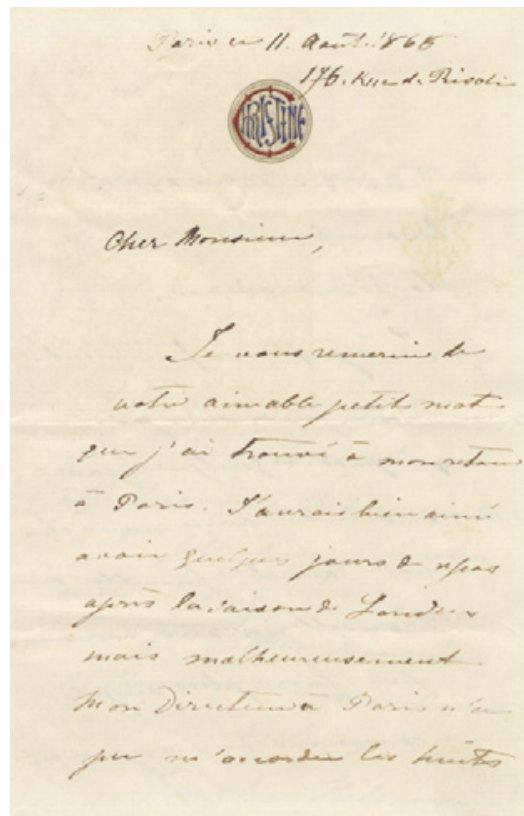 Paris ce 11. Août. 1865
176. Rue de Rivoli
CHRISTINE
Cher Monsieur,
Je vous remercie de
votre aimable petit mot
que j'ai trouvé à mon retour
à Paris. J'aurais bien aimé
avoir quelques jours de repos
après la saison de Londres
mais malheureusement
mon Directeur à Paris n'a
pu m'accorder les huits